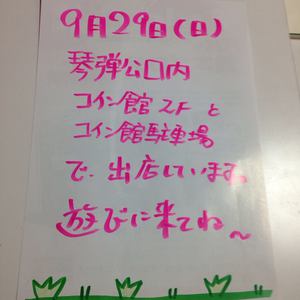 9月29日(日)
琴弾公口内
コイン館2Fと
コイン館駐車場
で、出店しています。
遊びに来てね~